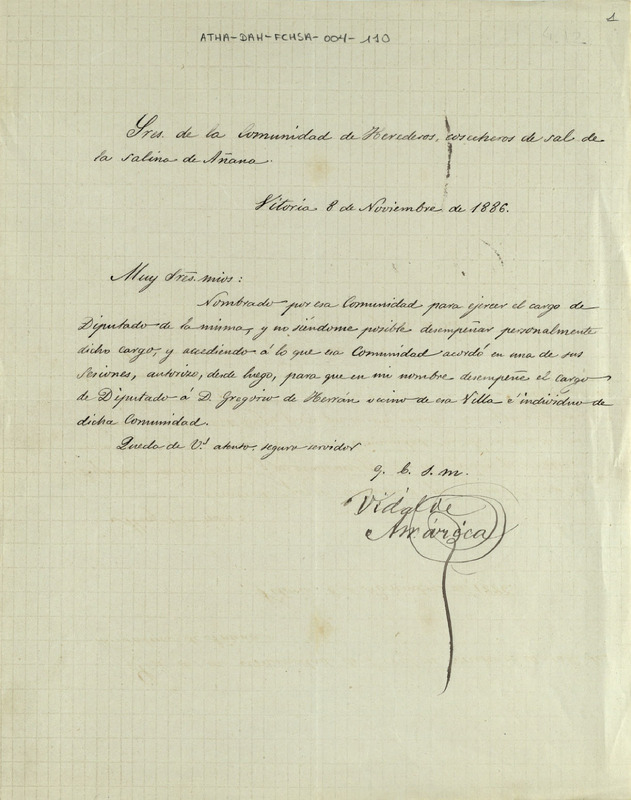 1
ATHA-DAH-FCHSA-004-110
Sres. de la Comunidad de Herederos, cosecheros de sal de
la salina de Añana.
Vitoria 8 de Noviembre de 1886.
Muy Sres. mios:
Nombrado por esa Comunidad para ejercer el cargo de
Diputado de la misma, y no siéndome posible desempeñar personalmente
dicho cargo, y accediendo á lo que esa Comunidad acordó en una de sus
sesiones, autorizo, desde luego, para que en mi nombre desempeñe el cargo
de Diputado á D. Gregorio de Herrán vecino de esa Villa é individuo de
dicha Comunidad.
Queda de Vs. atento, seguro servidor
q. b. s. m.
Vidal de
Arrárica